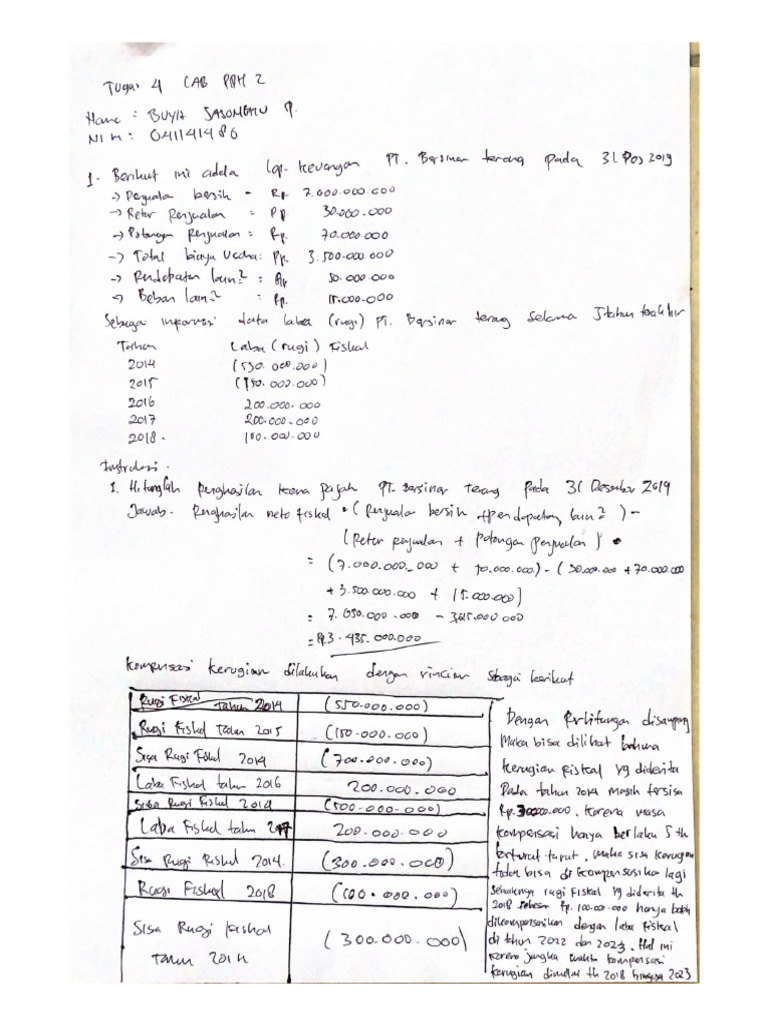 Tugas 4 LAB PPH 2
Nama : BUYA SASONGKO P.
NIM : 041141486
1. Berikut ini adala Lap. keuangan PT. Bersinar terang pada 31 Des 2019
-> Penjuala bersih = Rp. 7.000.000.000
-> Retur Penjualan = Rp. 30.000.000
-> Potongan penjualan = Rp. 70.000.000
-> Total biaya usaha : Rp. 3.500.000.000
-> Pendapatan lain² : Rp 50.000.000
-> Beban lain² : Rp. 15.000.000
Sebagai informasi data laba (rugi) PT. Bersinar terang selama 5 tahun terakhir
Tahun Laba (rugi) Fiskal
2014 (550.000.000)
2015 (150.000.000)
2016 200.000.000
2017 200.000.000
2018. 100.000.000
Instruksi.
1. Hitunglah Penghasilan kena pajak PT. Bersinar Terang Pada 31 Desember 2019
Jawab. Penghasilan neto fiskal = (Penjuala bersih + Pendapatan lain² ) -
(Retur penjualan + Potongan penjualan)
= (7.000.000.000 + 50.000.000) - (30.000.000 + 70.000.000
+ 3.500.000.000 + 15.000.000)
= 7.050.000.000 - 3.615.000.000
= Rp.3.435.000.000
Kompensasi kerugian dilakukan dengan rincian sebagai berikut
Rugi Fiskal tahun 2014 (550.000.000)
Rugi Fiskal Tahun 2015 (150.000.000)
Sisa Rugi Fiskal 2014 (700.000.000)
Laba Fiskal tahun 2016 200.000.000
Sisa Rugi Fiskal 2014 (500.000.000)
Laba Fiskal tahun 2017 200.000.000
Sisa Rugi Fiskal 2014. (300.000.000)
Rugi Fiskal 2018 (100.000.000)
Sisa Rugi Fiskal
tahun 2014 (300.000.000)
Dengan Perhitungan disamping
Maka bisa dilihat bahwa
kerugian fiskal yg diderita
Pada tahun 2014 masih tersisa
Rp.300.000.000. karena masa
kompensasi hanya berlaku 5 th
berturut turut. Maka sisa kerugian
tidak bisa di kompensasika lagi
Sebaiknya rugi Fiskal yg diderita th
2018 sebesar Rp. 100.000.000 hanya boleh
dikompensasikan dengan laba fiskal
di tahun 2022 dan 2023. Hal ini
karena jangka waktu kompensasi
kerugian dimulai th 2018 hingga 2023